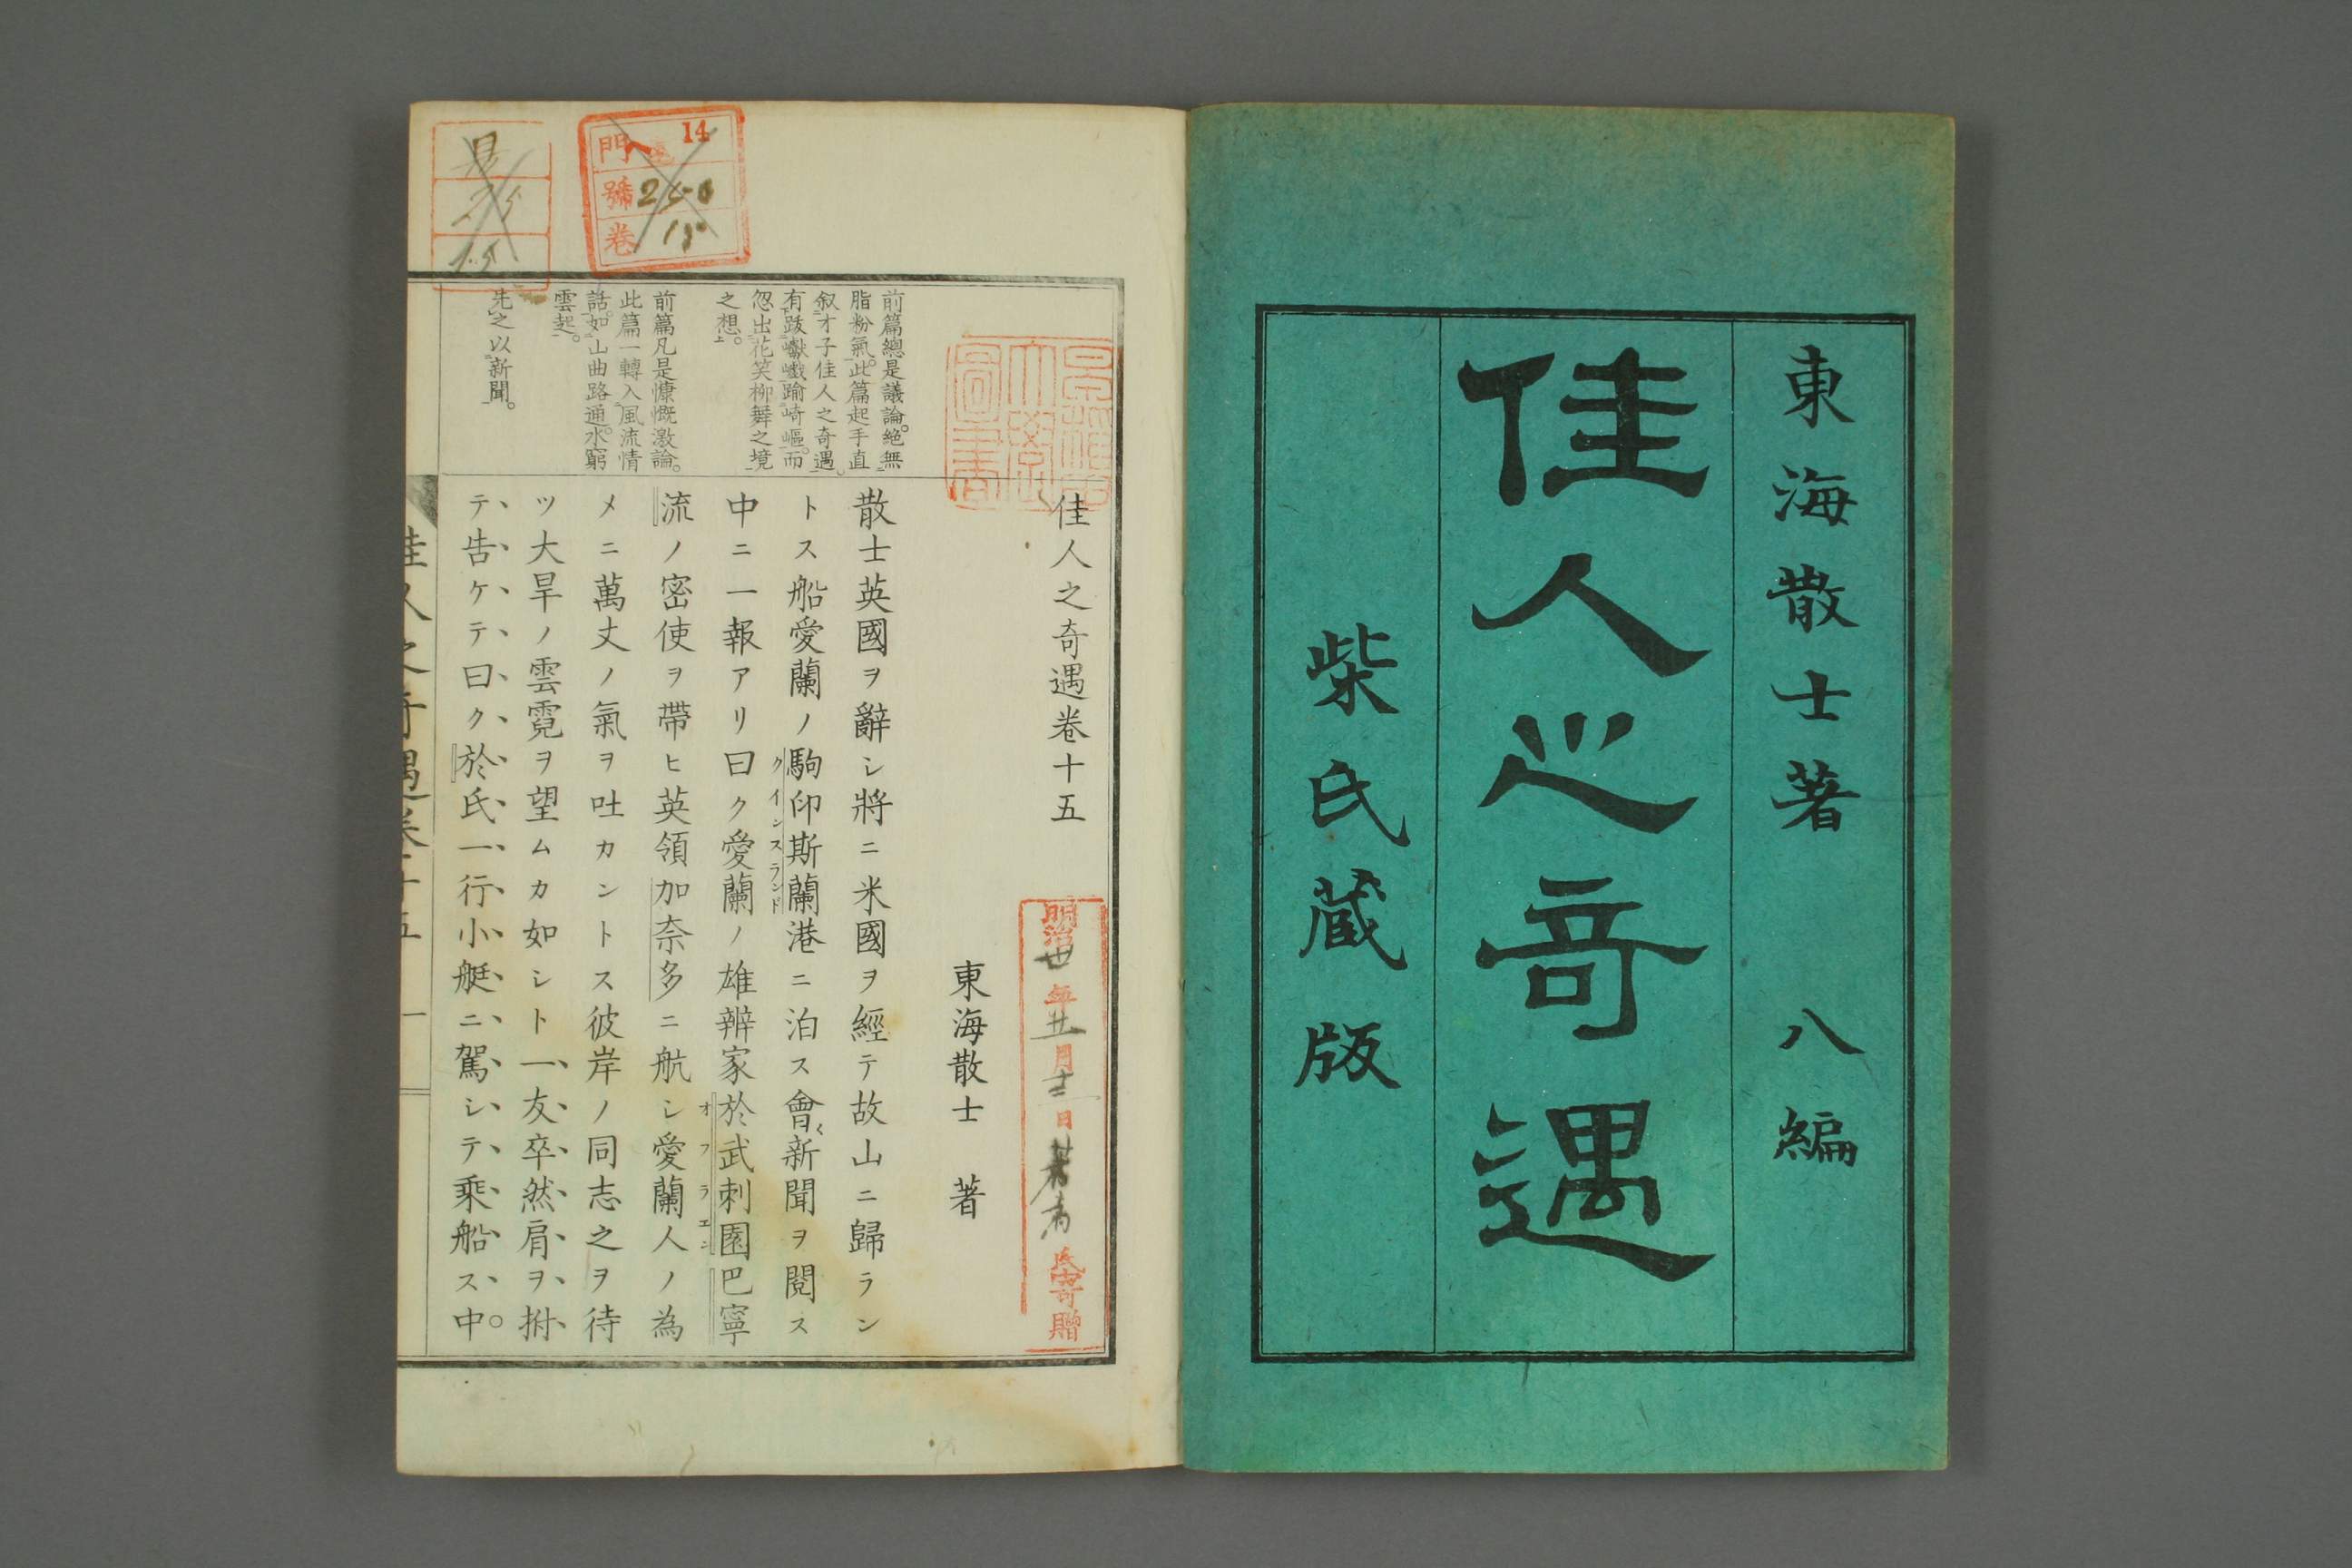 東海散士著 八編
佳人之奇遇
柴氏蔵版
佳人之奇遇卷十五
東海散士 著
散士英國ヲ辭シ將ニ米國ヲ經テ故山ニ歸ラン
トス船愛蘭ノ駒印斯蘭港ニ泊ス會〻新聞ヲ閲ス
クインスランド
中ニ一報アリ曰ク愛蘭ノ雄辨家於武刺園巴寧
オフラエン
流ノ密使ヲ帶ヒ英領加奈多ニ航シ愛蘭人ノ為
メニ萬丈ノ氣ヲ吐カントス彼岸ノ同志之ヲ待
ツ大旱ノ雲霓ヲ望ムカ如シト一友卒然肩ヲ拊
テ告ケテ曰ク於氏一行小艇ニ駕シテ乘船ス。中
前篇總是議論。絶無
脂粉氣。此篇起手直
叙才子佳人之奇遇。
有跋巘巉踰崎嶇。而
忽出花笑柳舞之境
之想。
前篇凡是慷慨激論。
此篇一轉入風流情
話。如山曲路通。水窮
雲起。
先之以新聞。
佳人之奇遇卷十五 一
門 14
號 250
卷 15
15
明治 年 月 日 氏寄贈
圖書